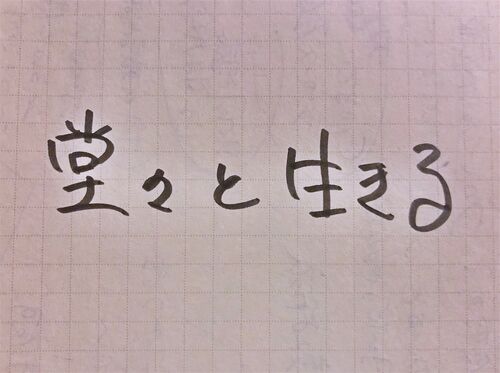 堂々と生きる